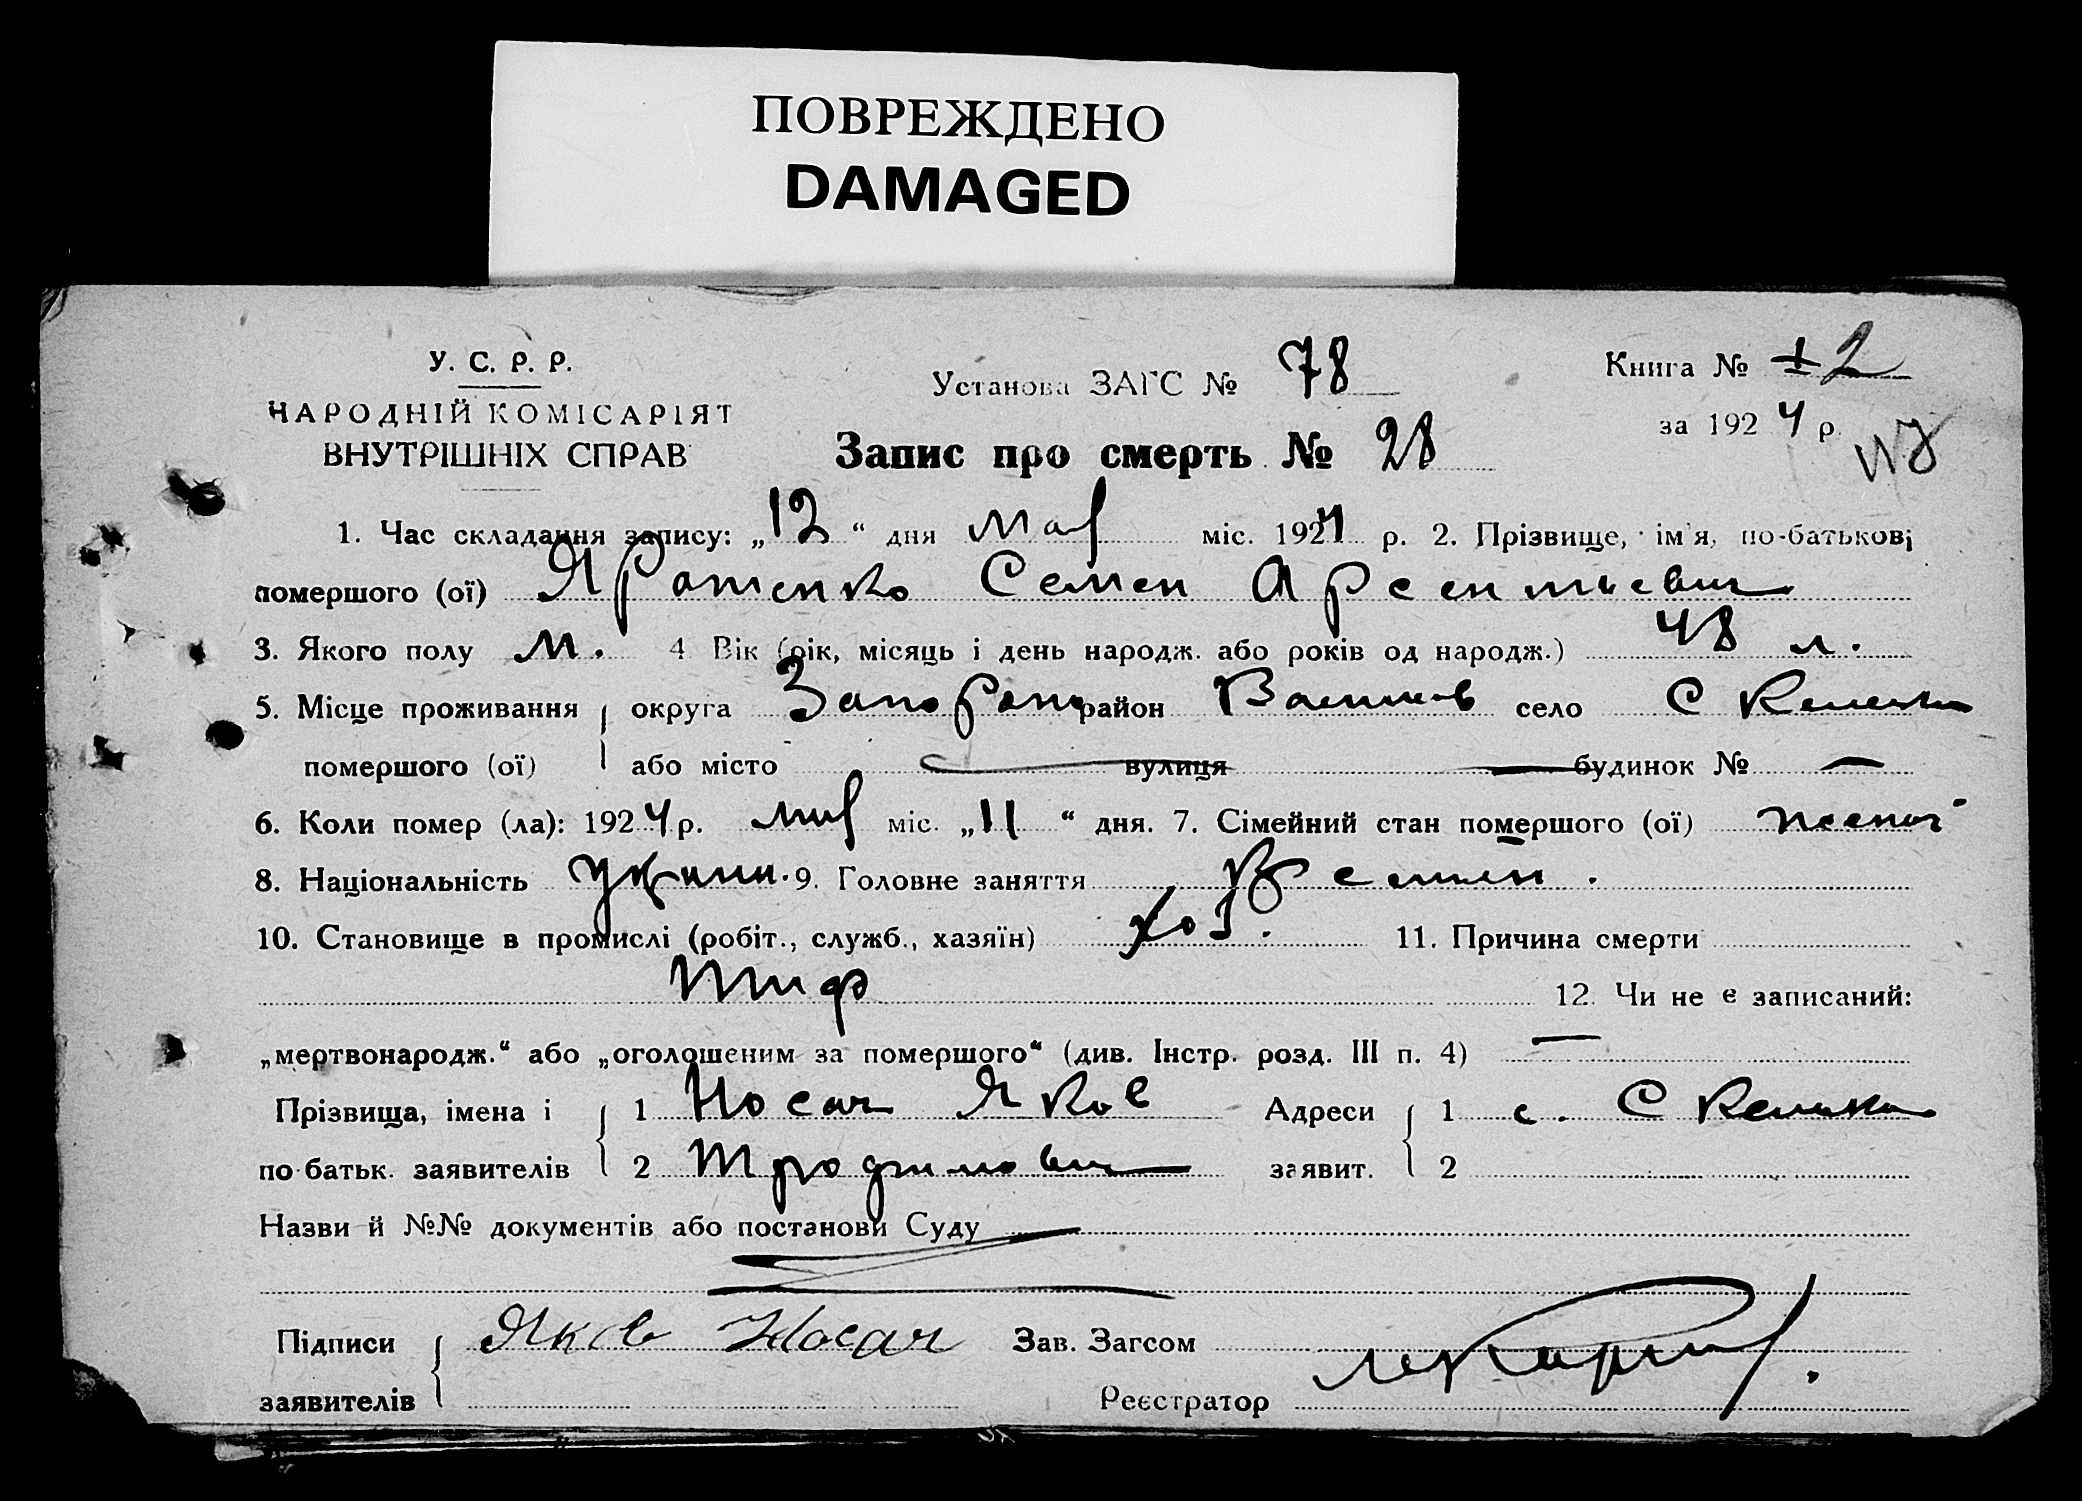 ПОВРЕЖДЕНО
DAMAGED
У. С. Р. Р.
НАРОДНІЙ КОМІСАРІЯТ
ВНУТРІШНІХ СПРАВ
Установа ЗАГС № 78
Книга № 2
за 1924 р.
Запис про смерть № 28
1. Час складання запису: „12“ дня Мар міс. 1924 р. 2. Прізвище, ім'я, по-батькові
помершого (ої) Яротенко Семен Арсентьевич
3. Якого полу м. 4 Вік (рік, місяць і день народж. або років од народж.) 48 л.
5. Місце проживання округа район село
помершого (ої) або місто — вулиця — будинок № —
6. Коли помер (ла): 1924 р. мар міс. „11“ дня. 7. Сімейний стан помершого (ої)
8. Національність 9. Головне заняття
10. Становище в промислі (робіт., служб., хазяїн) хоз. 11. Причина смерти
Тиф 12. Чи не є записаний:
„мертвонародж.“ або „оголошеним за помершого“ (див. Інстр. розд. III п. 4) —
Прізвища, імена і 1 Носач Яков Адреси 1 с.
по батьк. заявителів 2 Трофимович заявит. 2
Назви й №№ документів або постанови Суду
Підписи Яков Носач Зав. Загсом
заявителів Реєстратор